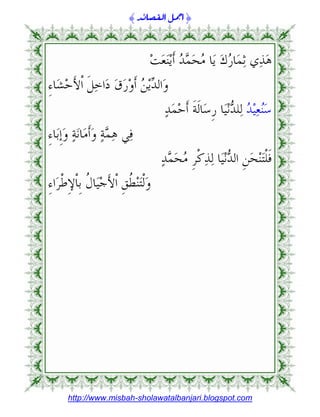 اجمل القصائد
هَذِي ثِمَارُكَ يَا مُحَمَّدُ أَيْنَعَتْ
وَالدِّيْنُ أَوْرَقَ دَاخِلَ اْلأَحْشَاءِ
سَنُعِيْدُ لِلدُّنْيَا رِسَالَةَ أَحْمَدٍ
فِي هِمَّةٍ وَأَمَانَةٍ وَإِبَاءِ
فَلْتَنْحَنِ الدُّنْيَا لِذِكْرِ مُحَمَّدٍ
وَلْتَنْطُقِ اْلأَجْيَالُ بِاْلإِطْرَاءِ
http://www.misbah-sholawatalbanjari.blogspot.com